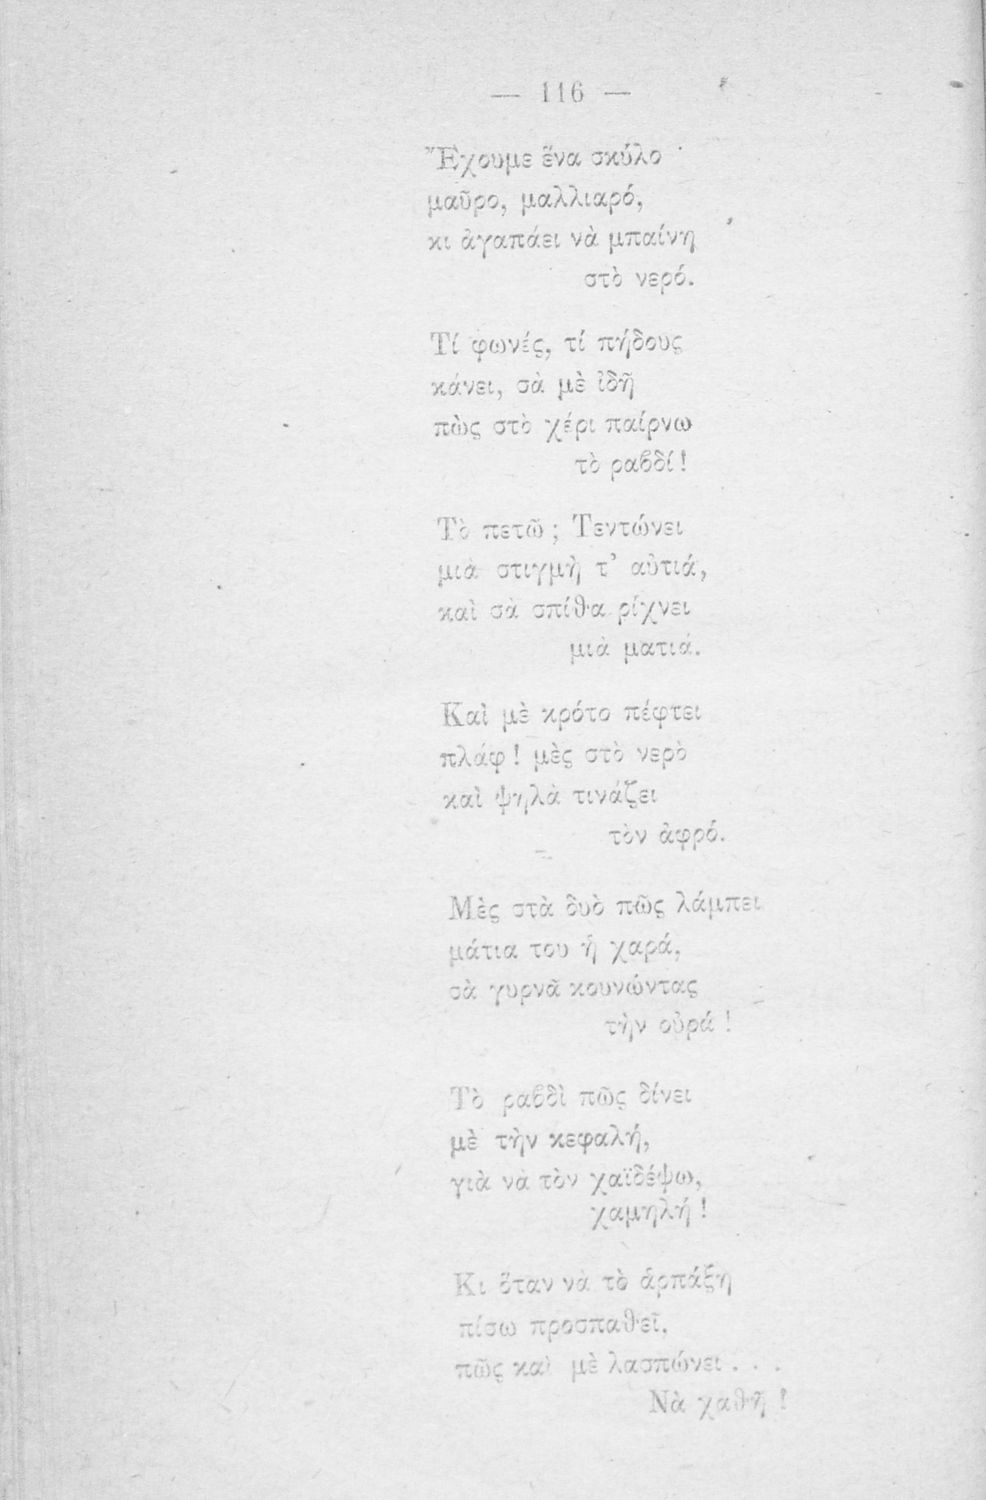 — 116 —
Ἔχουμε ἕνα σκύλο
μαῦρο, μαλλιαρό,
κι ἀγαπάει νὰ μπαίνῃ
στὸ νερό.
Τί φωνές, τί πήδους
κάνει, σὰ μὲ ἰδῆ
πὼς στὸ χέρι παίρνω
τὸ ραβδί!
Τὸ πετῶ; Τεντώνει
μιὰ στιγμὴ τ’ αὐτιά,
καὶ σὰ σπίθα ρίχνει
μιὰ ματιά.
Καὶ μὲ κρότο πέφτει
πλάφ! μὲς στὸ νερὸ
καὶ ψηλὰ τινάζει
τὸν ἀφρό.
Μὲς στὰ δυὸ πῶς λάμπει
μάτια του ἡ χαρά,
σὰ γυρνᾶ κουνώντας
τὴν οὐρά!
Τὸ ραβδὶ πῶς δίνει
μὲ τὴν κεφαλή,
γιὰ νὰ τὸν χαϊδέψω,
χαμηλή!
Κι ὅταν νὰ τὸ ἁρπάξῃ
πίσω προσπαθεῖ,
πῶς καὶ μὲ λασπώνει . . .
Νὰ χαθῆ!